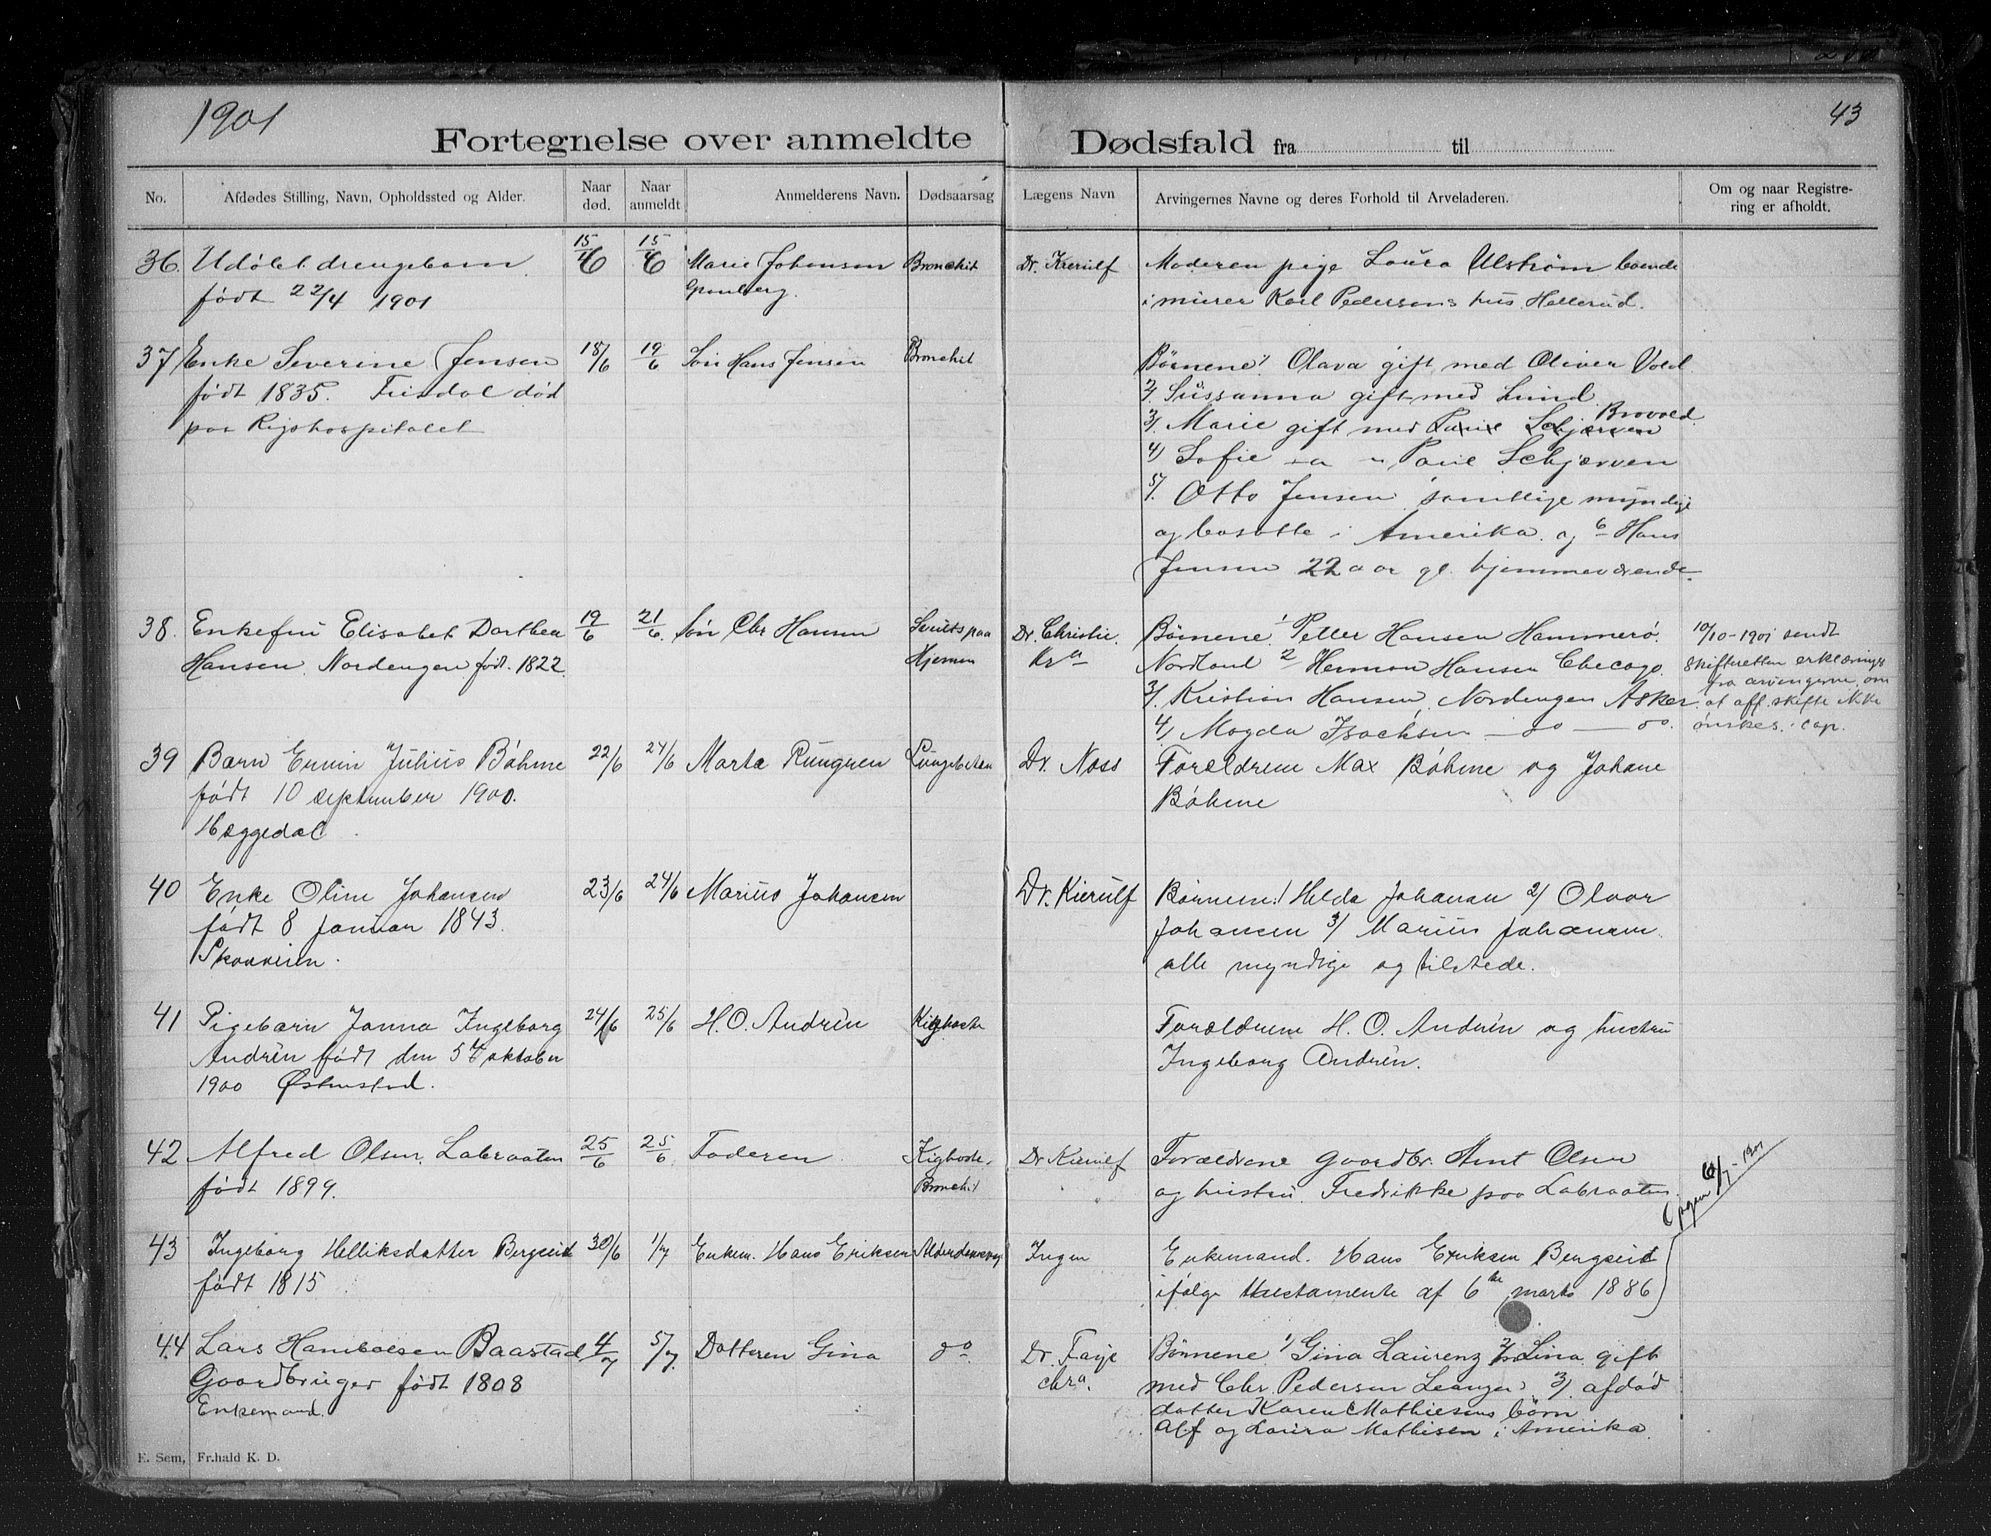 1901
43
Fortegnelse over anmeldte Dødsfald fra til
No. Afdødes Stilling, Navn, Opholdssted og Alder. Naar død. Naar anmeldt Anmelderens Navn. Dødsaarsag Lægens Navn Arvingernes Navne og deres Forhold til Arveladeren. Om og naar Registrering er afholdt.
36. Udøbt drengebarn 15/6 15/6 Marie Johansen Bronchit Dr. Kierulf Moderen pige Laura Ulstrøm boende
født 22/4 1901 Grønberg. i murer Karl Pedersens hus Hellerud.
37 Enke Severine Jensen 18/6 19/6 Søn Hans Jensen Bronchit Børnene 1/ Olava gift med Oliver Vold
født 1835. død 2/ Sussanna gift med Lund
paa Rigshospitalet 3/ Marie gift med Brovold
4/ Sofie Schjærven
5/ Otto Jensen samtlige myndige
og bosatte i Amerika og 6 Hans
Jensen 22 aar gl. hjemmeværende.
38. Enkefru Elisabet Dorthea 19/6 21/6. Søn Chr Hansen Dr. Christie. Børnene 1 Petter Hansen Hammerø. 10/10-1901 sendt
Hansen. Nordengen født. 1822. Hjernen Kra Nordland 2 Herman Hansen Checago. skifteretten erklæring
3/ Kristian Hansen, Nordengen Asker. fra arvingerne, om
at off. skifte ikke
4/ Magda Isachsen — do — do. ønskes. cop.
39 Barn Erwin Julius Bøhme 22/6 24/6 Marta Rungren Dr. Noss Forældrene Max Bøhme og Johane
født 10 september 1900. Bøhme
Heggedal
40 Enke Oline Johansen 23/6 24/6 Marius Johansen Dr. Kierulf Børnene 1/ Helda Johansen 2/ Olaar
født 8 Januar 1843. Johansen 3/ Marius Johansen.
Skaaveien. alle myndige og tilstede.
41 Pigebarn Janna Ingeborg 24/6 25/6 H. O. Andrén Kighoste Forældrene H. O. Andrén og hustru
Andrén født den 5te oktober Ingeborg Andrén.
1900 Østenstad.
42 Alfred Olsen. Labraaten 25/6 25/6. Faderen Kighoste. Dr Kierulf Forældrene gaardbr. Arnt Olsen
født 1899. Bronchit og hustru. Fredrikke paa Labraaten.
43 Ingeborg Helliksdatter Bergseid 30/6 1/7 Enkem. Hans Eriksen Alderdomssvag Ingen Enkemand. Hans Eriksen Bergseid
født 1815 ifølge testamente af 6te marts 1886
44 Lars Hanibalsen Baastad 4/7 5/7. Datteren Gina do Dr. Faye Børnene 1/ Gina Laurenz 2/ Lina gift
Gaardbruger født 1808 chra. med Chr. Pedersen Leangen 3/ afdød
Enkemand. datter Karen Mathiesens børn
Alf og Laura Mathisen i Amerika.
E. Sem, Fr.hald K. D.